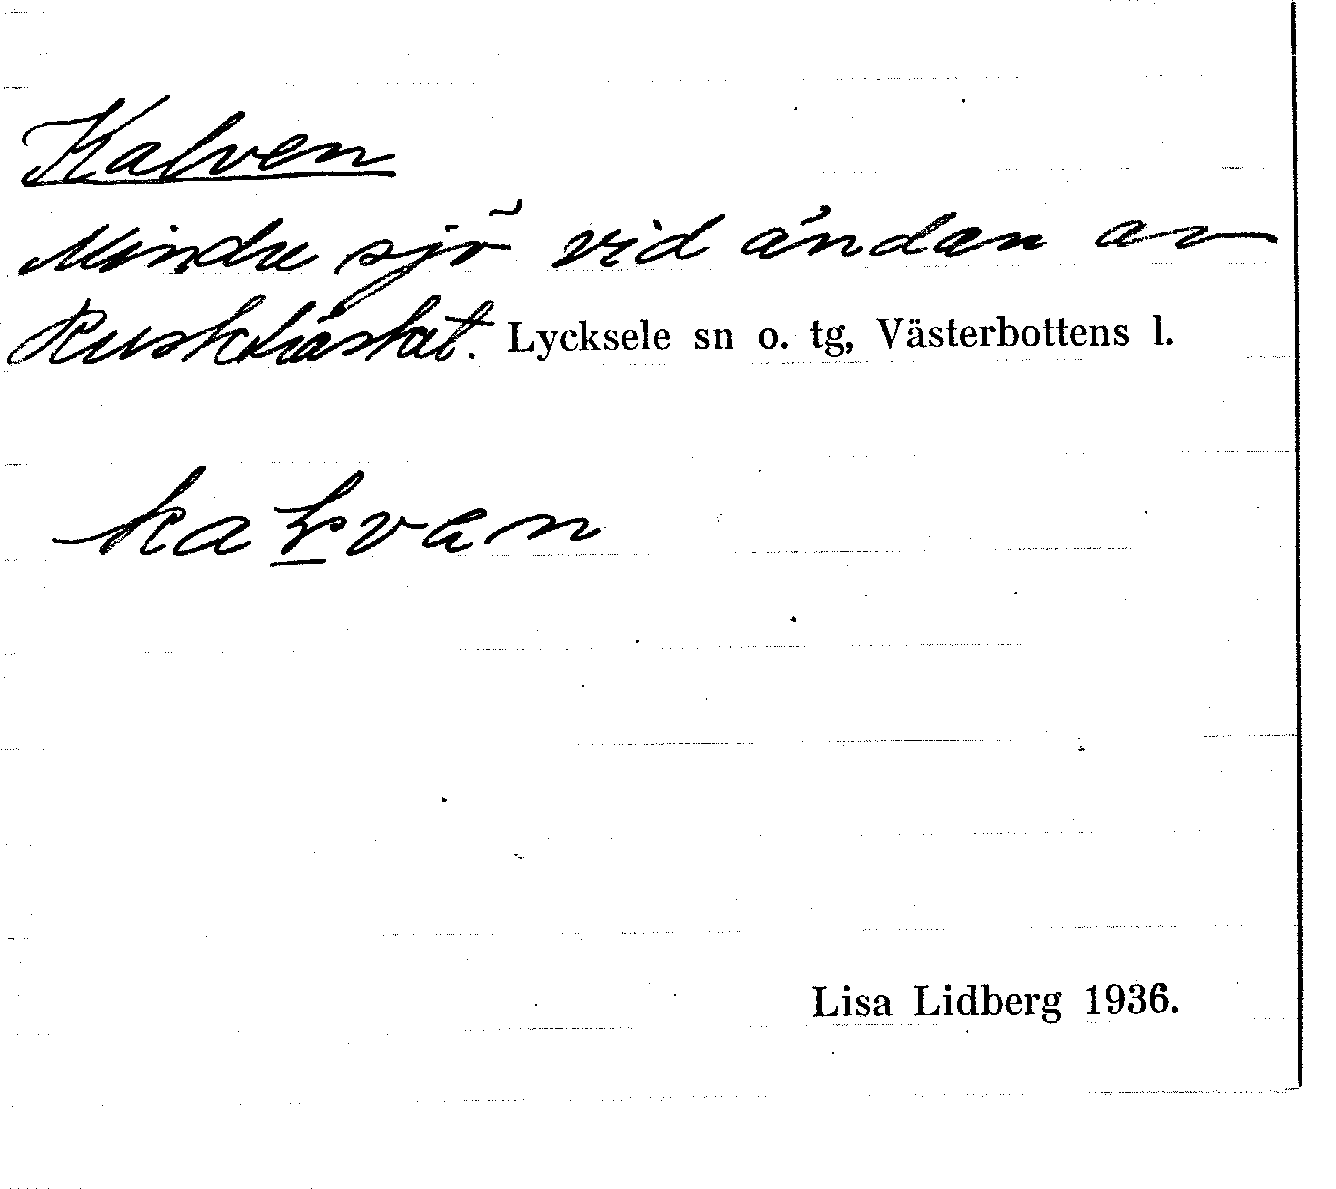 Kalven
Mindre sjö vid ändan av
Ruskträsket. Lycksele sn o. tg, Västerbottens l.
Lisa Lidberg 1936.